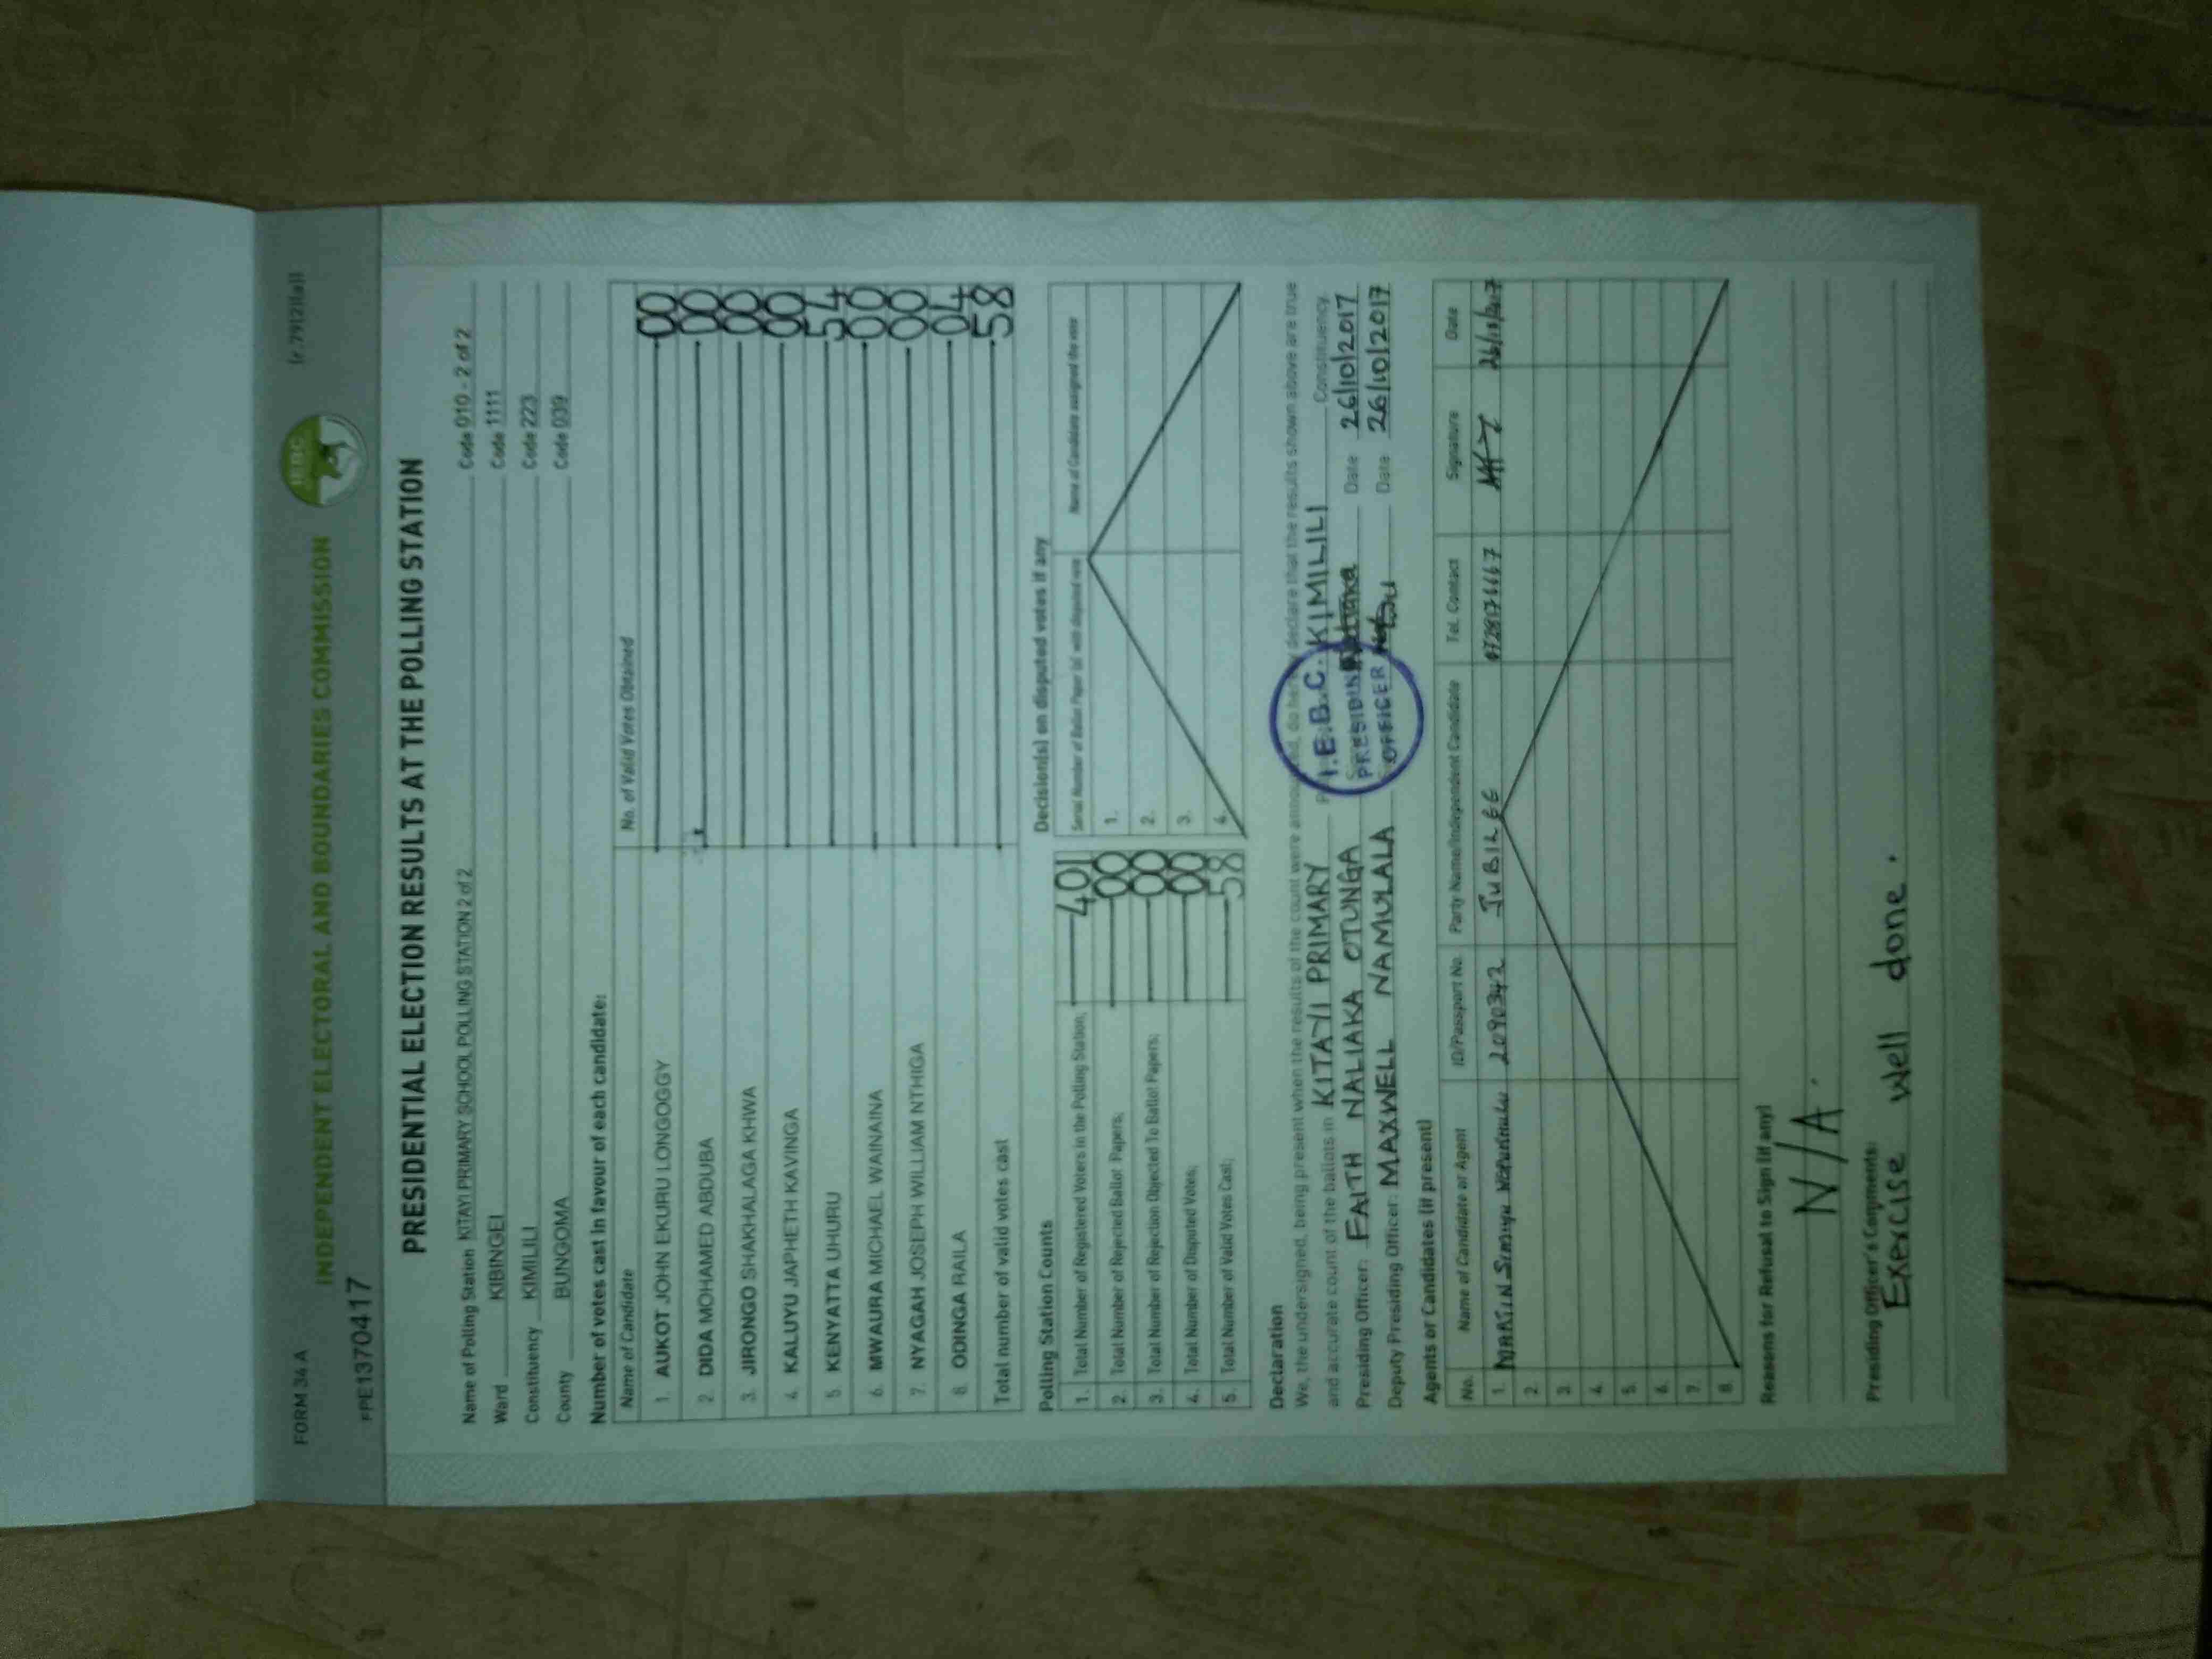 FORM 34 A
(r.79(2)(a))
INDEPENDENT ELECTORAL AND BOUNDARIES COMMISSION
IEBC
FPE1370417
PRESIDENTIAL ELECTION RESULTS AT THE POLLING STATION
Name of Polling Station KITAYI PRIMARY SCHOOL POLLING STATION 2 of 2 Code 010 - 2 of 2
Ward KIBINGEI Code 1111
Constituency KIMILILI Code 223
County BUNGOMA Code 039
Number of votes cast in favour of each candidate:
Name of Candidate No. of Valid Votes Obtained
1. AUKOT JOHN EKURU LONGOGGY 00
2. DIDA MOHAMED ABDUBA 00
3. JIRONGO SHAKHALAGA KHWA 00
4. KALUYU JAPHETH KAVINGA 00
5. KENYATTA UHURU 54
6. MWAURA MICHAEL WAINAINA 00
7. NYAGAH JOSEPH WILLIAM NTHIGA 00
8. ODINGA RAILA 04
Total number of valid votes cast 58
Polling Station Counts
1. Total Number of Registered Voters in the Polling Station; 401
2. Total Number of Rejected Ballot Papers; 00
3. Total Number of Rejection Objected To Ballot Papers; 00
4. Total Number of Disputed Votes; 00
5. Total Number of Valid Votes Cast; 58
Decision(s) on disputed votes if any
Serial Number of Ballot Paper (s) with disputed vote Name of Candidate assigned the vote
1.
2.
3.
4.
Declaration
We, the undersigned, being present when the results of the count were declare that the results shown above are true
and accurate count of the ballots in KITAYI PRIMARY KIMILILI Constituency.
Presiding Officer: FAITH NALIAKA OTUNGA Date 26/10/2017
Deputy Presiding Officer: MAXWELL NAMULALA Date 26/10/2017
I.E.B.C.
PRESIDING
OFFICER
Agents or Candidates (if present)
No. Name of Candidate or Agent ID/Passport No. Party Name/Independent Candidate Tel. Contact Signature Date
1. MARTIN 2090342 JUBILEE 0728176667 26/10/2017
2.
3.
4.
5.
6.
7.
8.
Reasons for Refusal to Sign (if any)
N/A.
Presiding Officer's Comments:
Exercise well done.